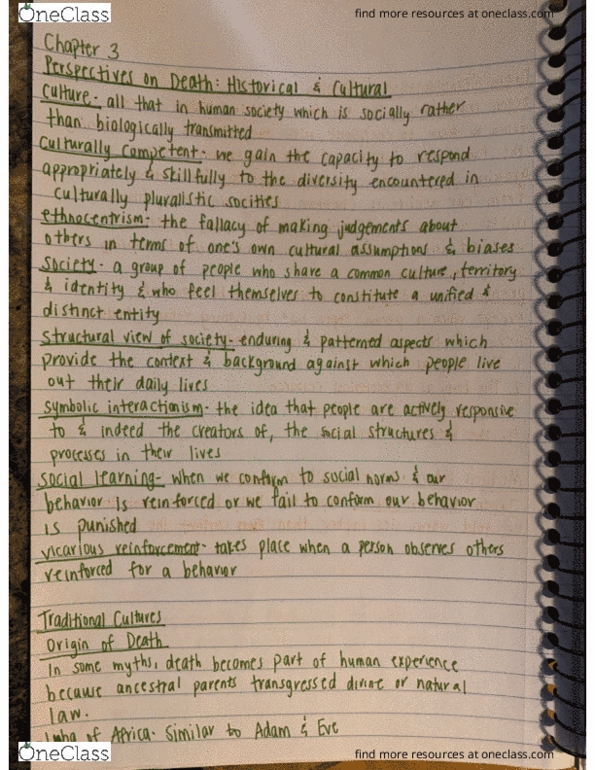 OneClass
find more resources at oneclass.com
Chapter 3
Perspectives on Death: Historical & Cultural
Culture- all that in human society which is socially rather
than biologically transmitted
Culturally Competent- we gain the capacity to respond
appropriately & skillfully to the diversity encountered in
culturally pluralistic socities
ethnocentrism- the fallacy of making judgements about
others in terms of one's own cultural assumptions & biases
Society- a group of people who share a common culture, territory
& identity & who feel themselves to constitute a unified &
distinct entity
Structural view of society- enduring & patterned aspects which
provide the context & background against which people live
out their daily lives
Symbolic interactionism- the idea that people are actively responsive
to & indeed the creators of, the social structures &
processes in their lives
Social learning- when we conform to social norms & our
behavior is reinforced or we fail to conform our behavior
is punished
Vicarious reinforcement- takes place when a person observes others
reinforced for a behavior
Traditional Cultures
Origin of Death
In some myths, death becomes part of human experience
because ancestral parents transgressed divine or natural
law.
of Africa- Similar to Adam & Eve
OneClass
find more resources at oneclass.com